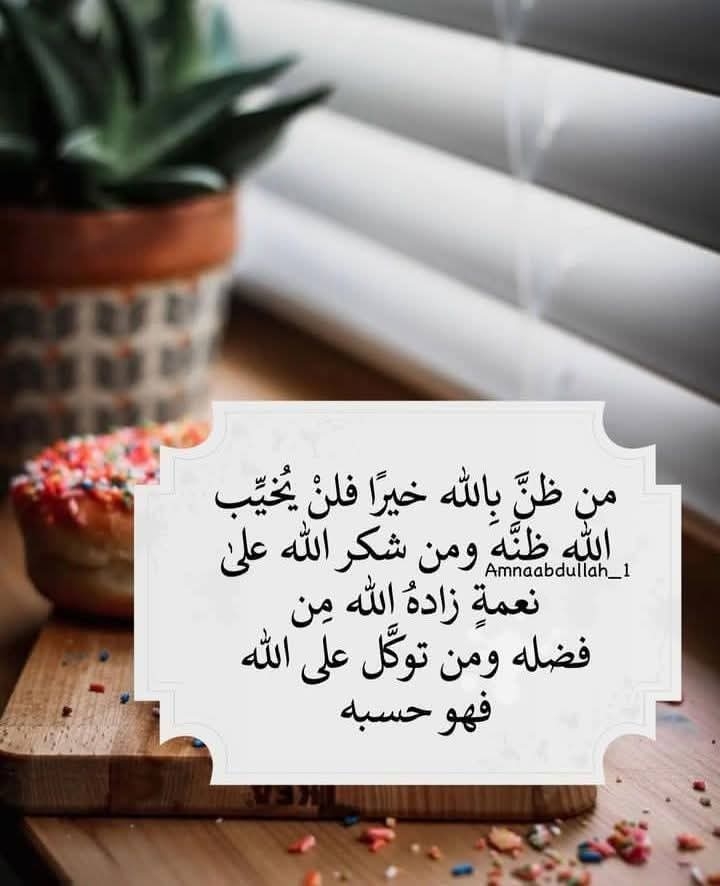 من ظنَّ بِالله خيرًا فلنْ يُخيِّب
الله ظنَّه ومن شكر الله علىٰ
Amnaabdullah_1
نعمةٍ زادهُ الله مِن
فضله ومن توكَّل على الله
فهو حسبه